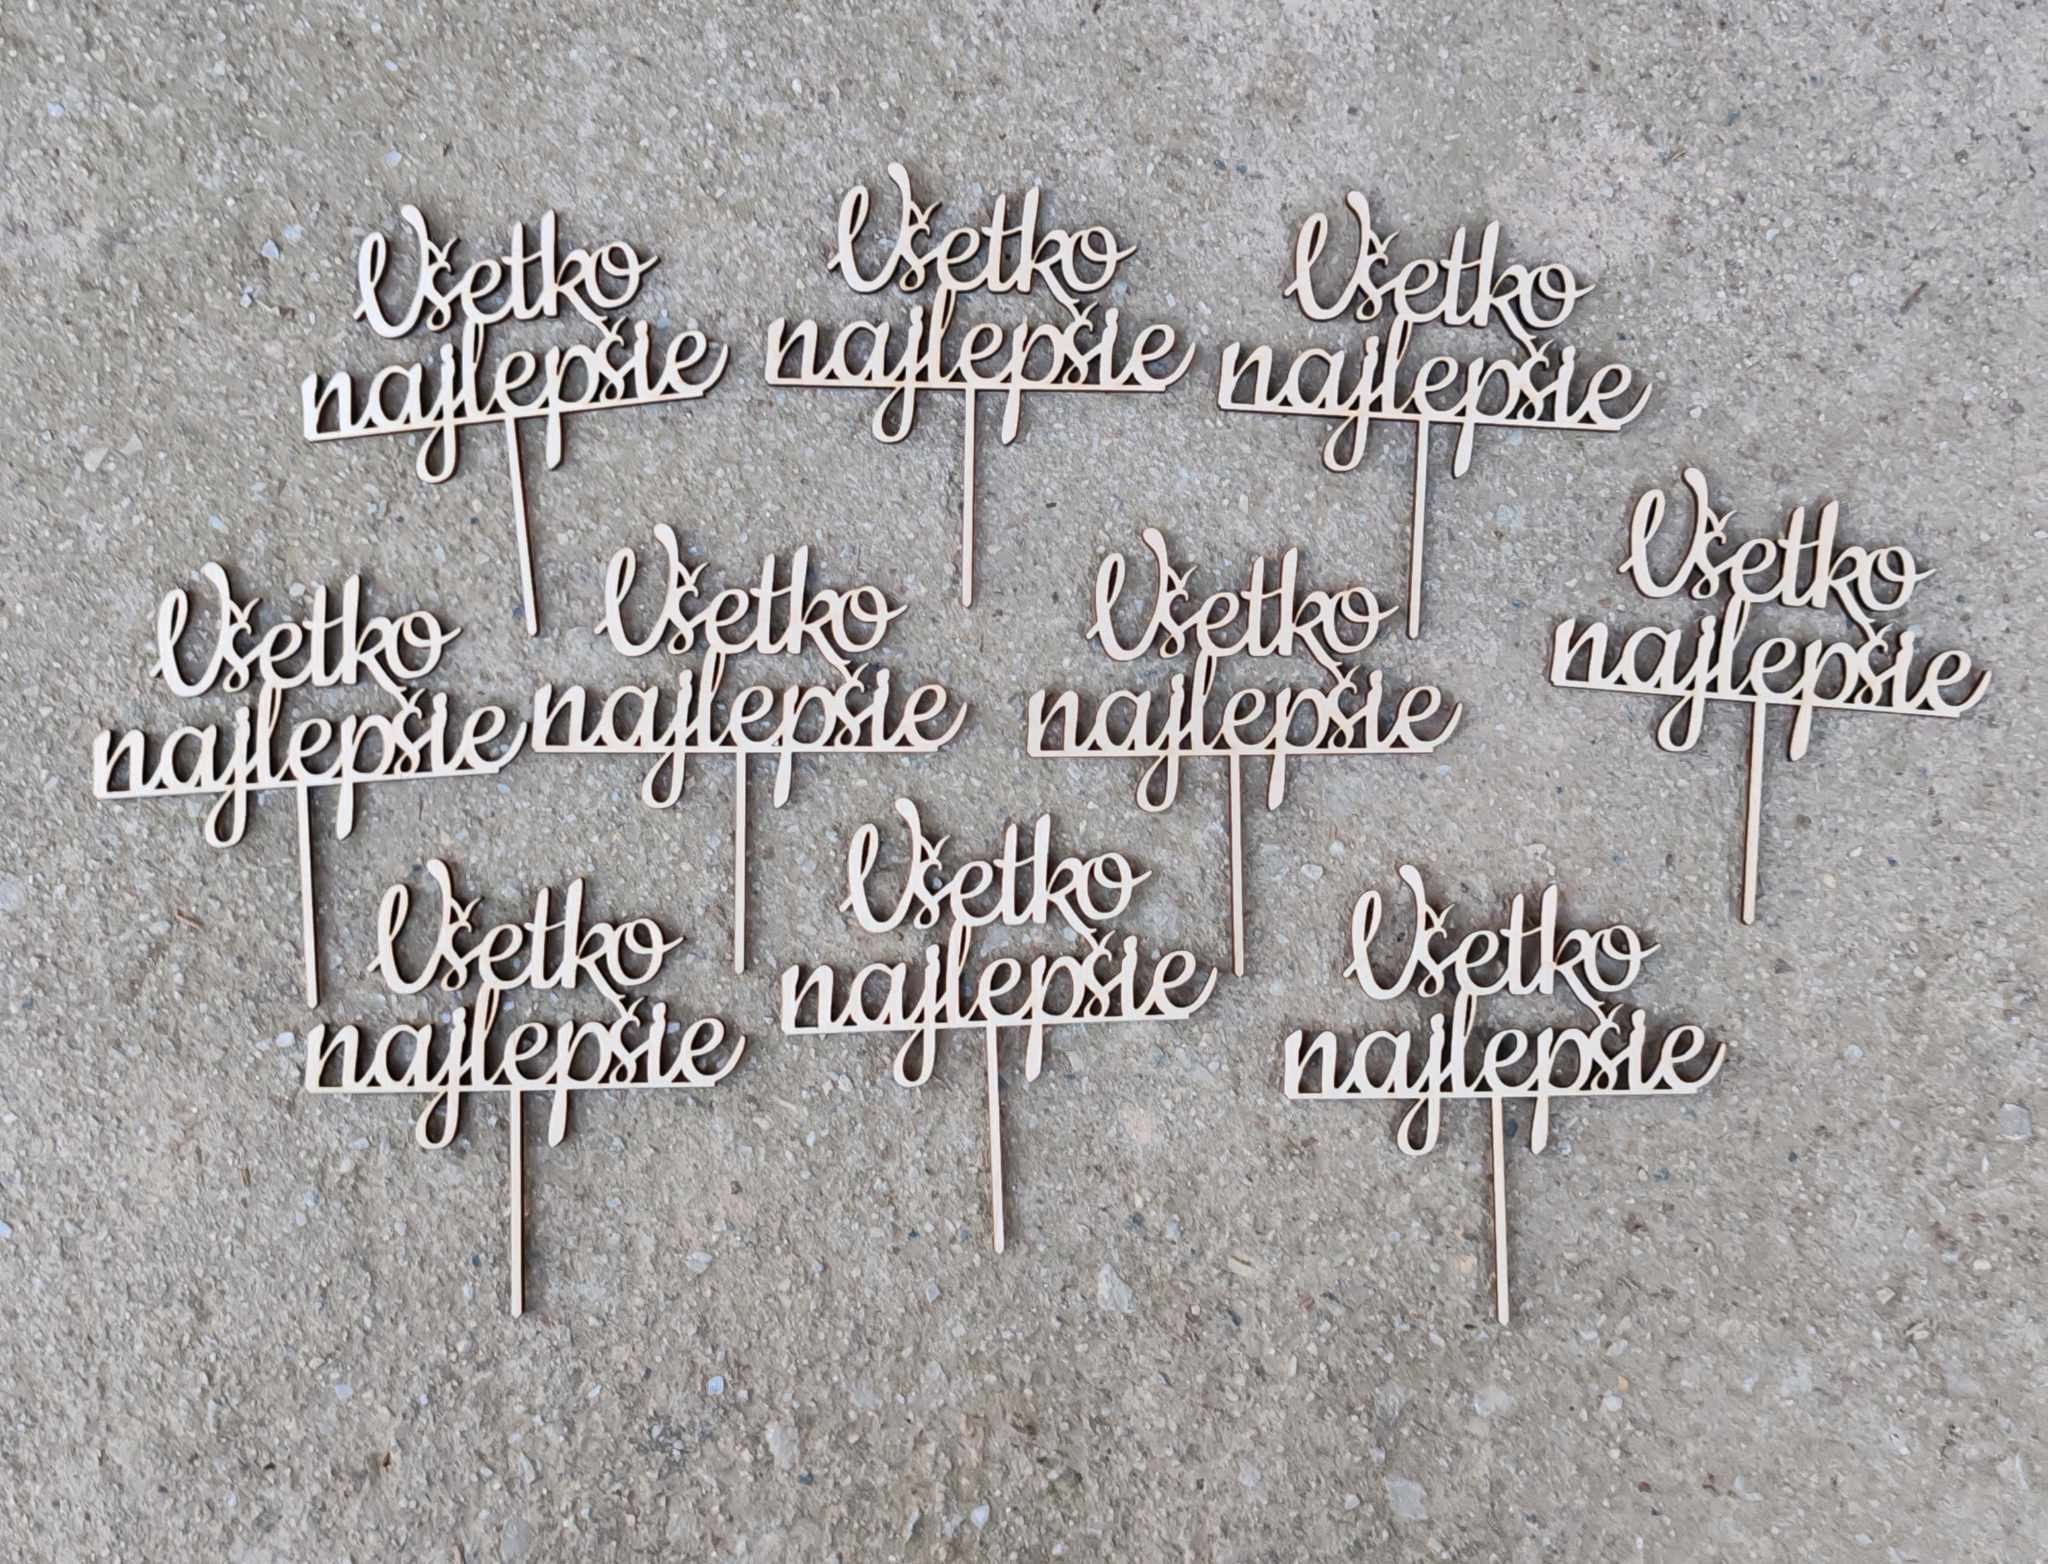 Všetko
najlepšie
Všetko
najlepšie
Všetko
najlepšie
Všetko
najlepšie
Všetko
najlepšie
Všetko
najlepšie
Všetko
najlepšie
Všetko
najlepšie
Všetko
najlepšie
Všetko
najlepšie